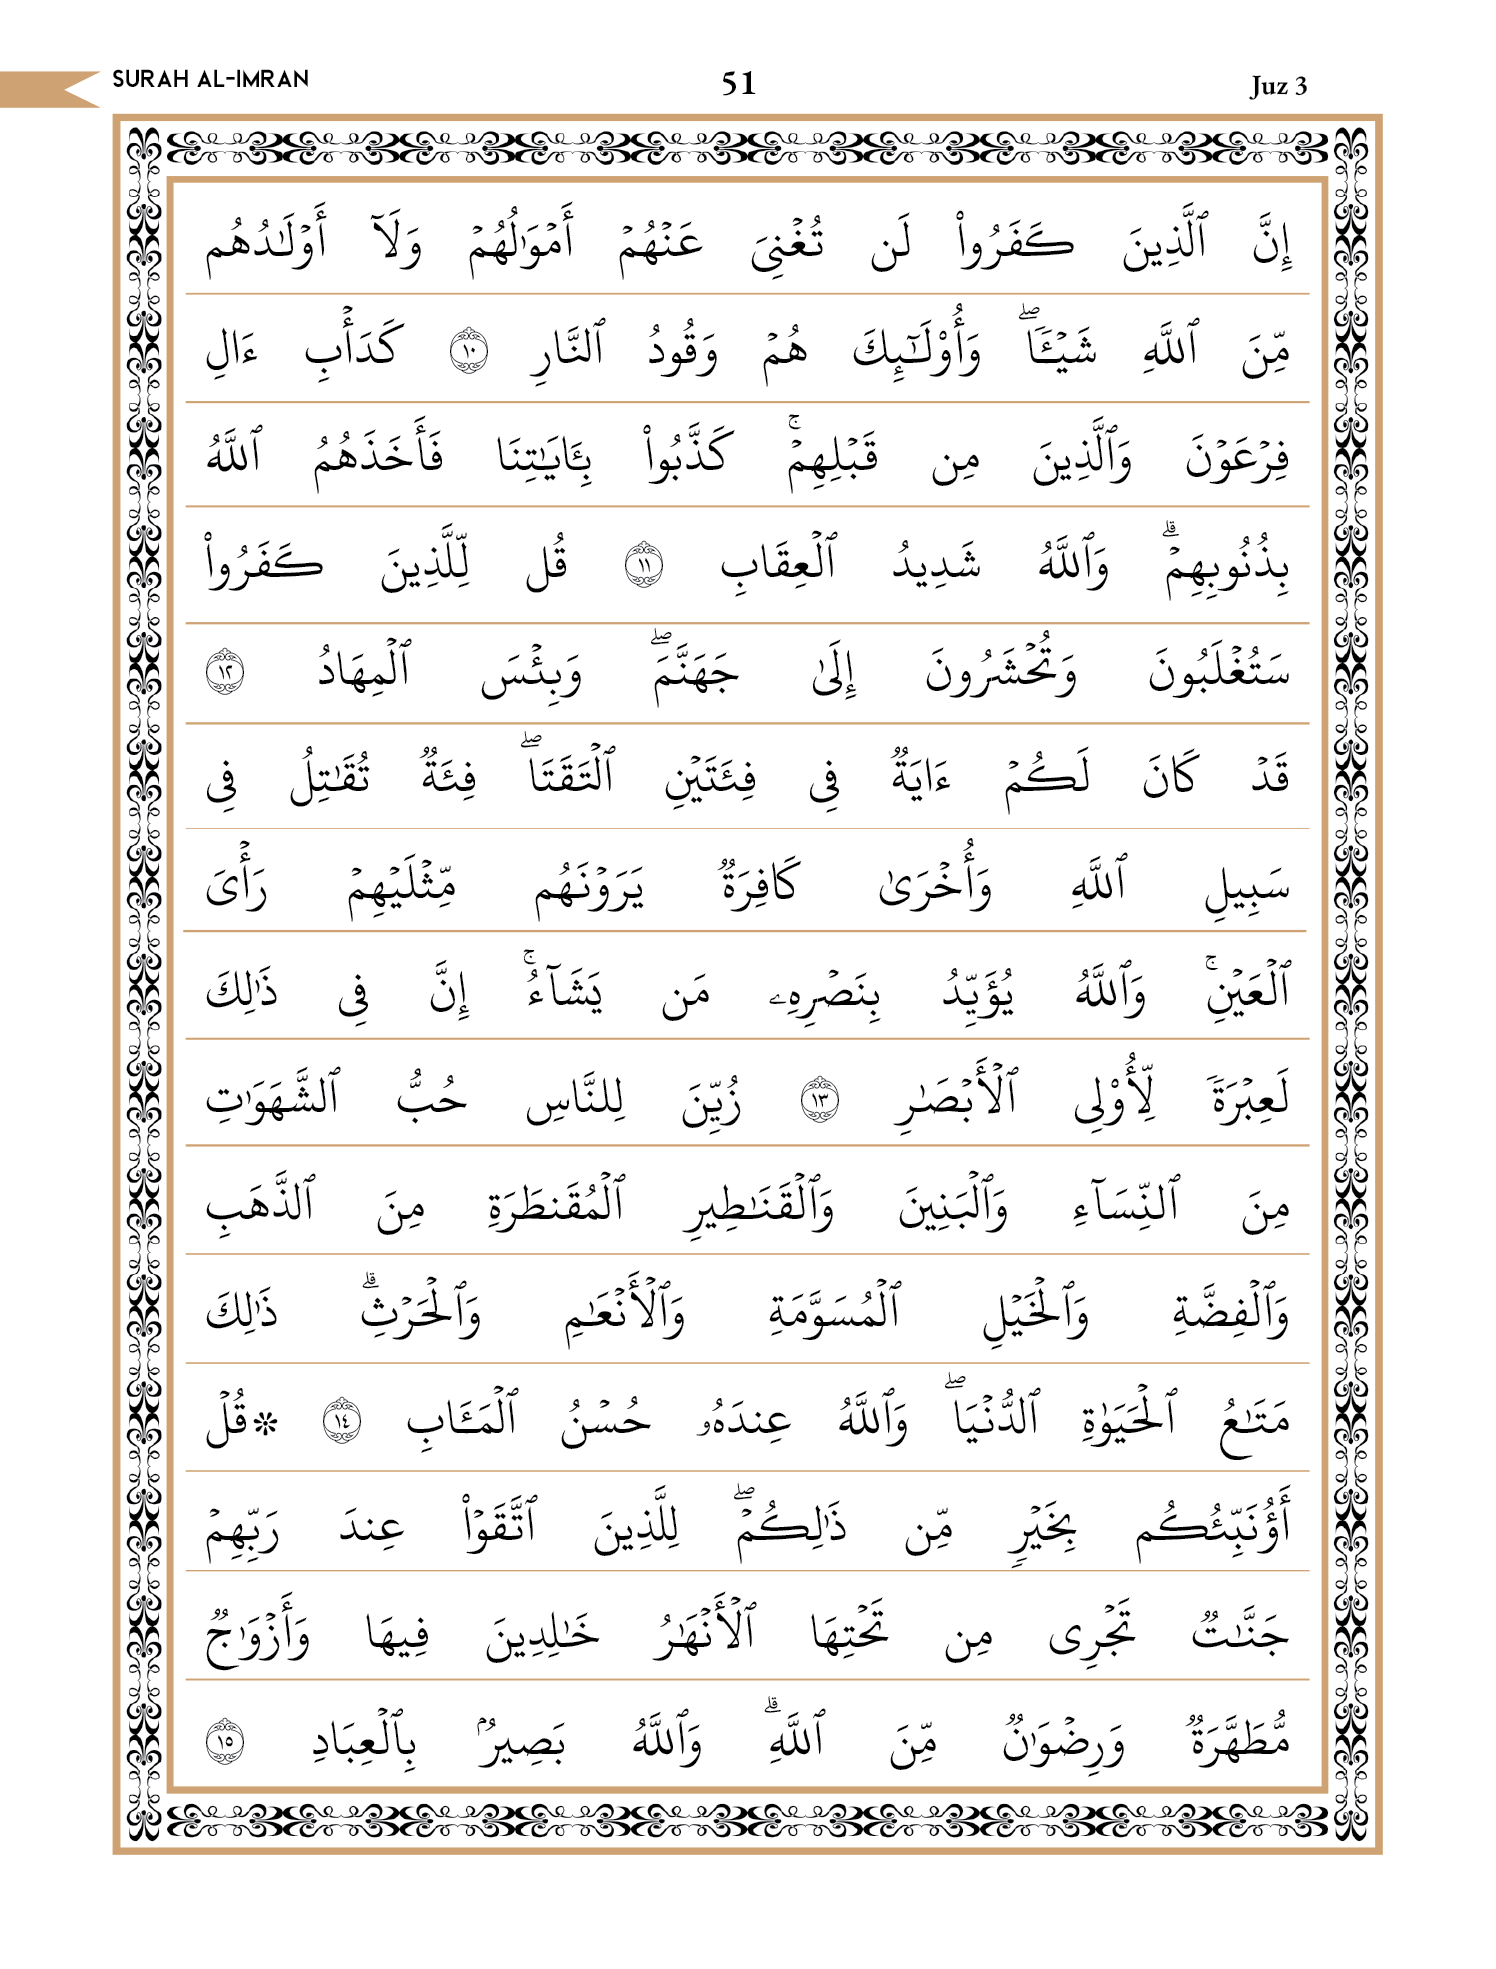 SURAH AL-IMRAN 51 Juz 3
إِنَّ ٱلَّذِينَ كَفَرُوا۟ لَن تُغْنِىَ عَنْهُمْ أَمْوَٰلُهُمْ وَلَآ أَوْلَـٰدُهُم
مِّنَ ٱللَّهِ شَيْـًٔا ۖ وَأُو۟لَـٰٓئِكَ هُمْ وَقُودُ ٱلنَّارِ ١٠ كَدَأْبِ ءَالِ
فِرْعَوْنَ وَٱلَّذِينَ مِن قَبْلِهِمْ ۚ كَذَّبُوا۟ بِـَٔايَـٰتِنَا فَأَخَذَهُمُ ٱللَّهُ
بِذُنُوبِهِمْ ۗ وَٱللَّهُ شَدِيدُ ٱلْعِقَابِ ١١ قُل لِّلَّذِينَ كَفَرُوا۟
سَتُغْلَبُونَ وَتُحْشَرُونَ إِلَىٰ جَهَنَّمَ ۖ وَبِئْسَ ٱلْمِهَادُ ١٢
قَدْ كَانَ لَكُمْ ءَايَةٌ فِى فِئَتَيْنِ ٱلْتَقَتَا ۖ فِئَةٌ تُقَـٰتِلُ فِى
سَبِيلِ ٱللَّهِ وَأُخْرَىٰ كَافِرَةٌ يَرَوْنَهُم مِّثْلَيْهِمْ رَأْىَ
ٱلْعَيْنِ ۚ وَٱللَّهُ يُؤَيِّدُ بِنَصْرِهِۦ مَن يَشَآءُ ۚ إِنَّ فِى ذَٰلِكَ
لَعِبْرَةً لِّأُو۟لِى ٱلْأَبْصَـٰرِ ١٣ زُيِّنَ لِلنَّاسِ حُبُّ ٱلشَّهَوَٰتِ
مِنَ ٱلنِّسَآءِ وَٱلْبَنِينَ وَٱلْقَنَـٰطِيرِ ٱلْمُقَنطَرَةِ مِنَ ٱلذَّهَبِ
وَٱلْفِضَّةِ وَٱلْخَيْلِ ٱلْمُسَوَّمَةِ وَٱلْأَنْعَـٰمِ وَٱلْحَرْثِ ۗ ذَٰلِكَ
مَتَـٰعُ ٱلْحَيَوٰةِ ٱلدُّنْيَا ۖ وَٱللَّهُ عِندَهُۥ حُسْنُ ٱلْمَـَٔابِ ١٤ * قُلْ
أَؤُنَبِّئُكُم بِخَيْرٍ مِّن ذَٰلِكُمْ ۖ لِلَّذِينَ ٱتَّقَوْا۟ عِندَ رَبِّهِمْ
جَنَّـٰتٌ تَجْرِى مِن تَحْتِهَا ٱلْأَنْهَـٰرُ خَـٰلِدِينَ فِيهَا وَأَزْوَٰجٌ
مُّطَهَّرَةٌ وَرِضْوَٰنٌ مِّنَ ٱللَّهِ ۗ وَٱللَّهُ بَصِيرٌۢ بِٱلْعِبَادِ ١٥